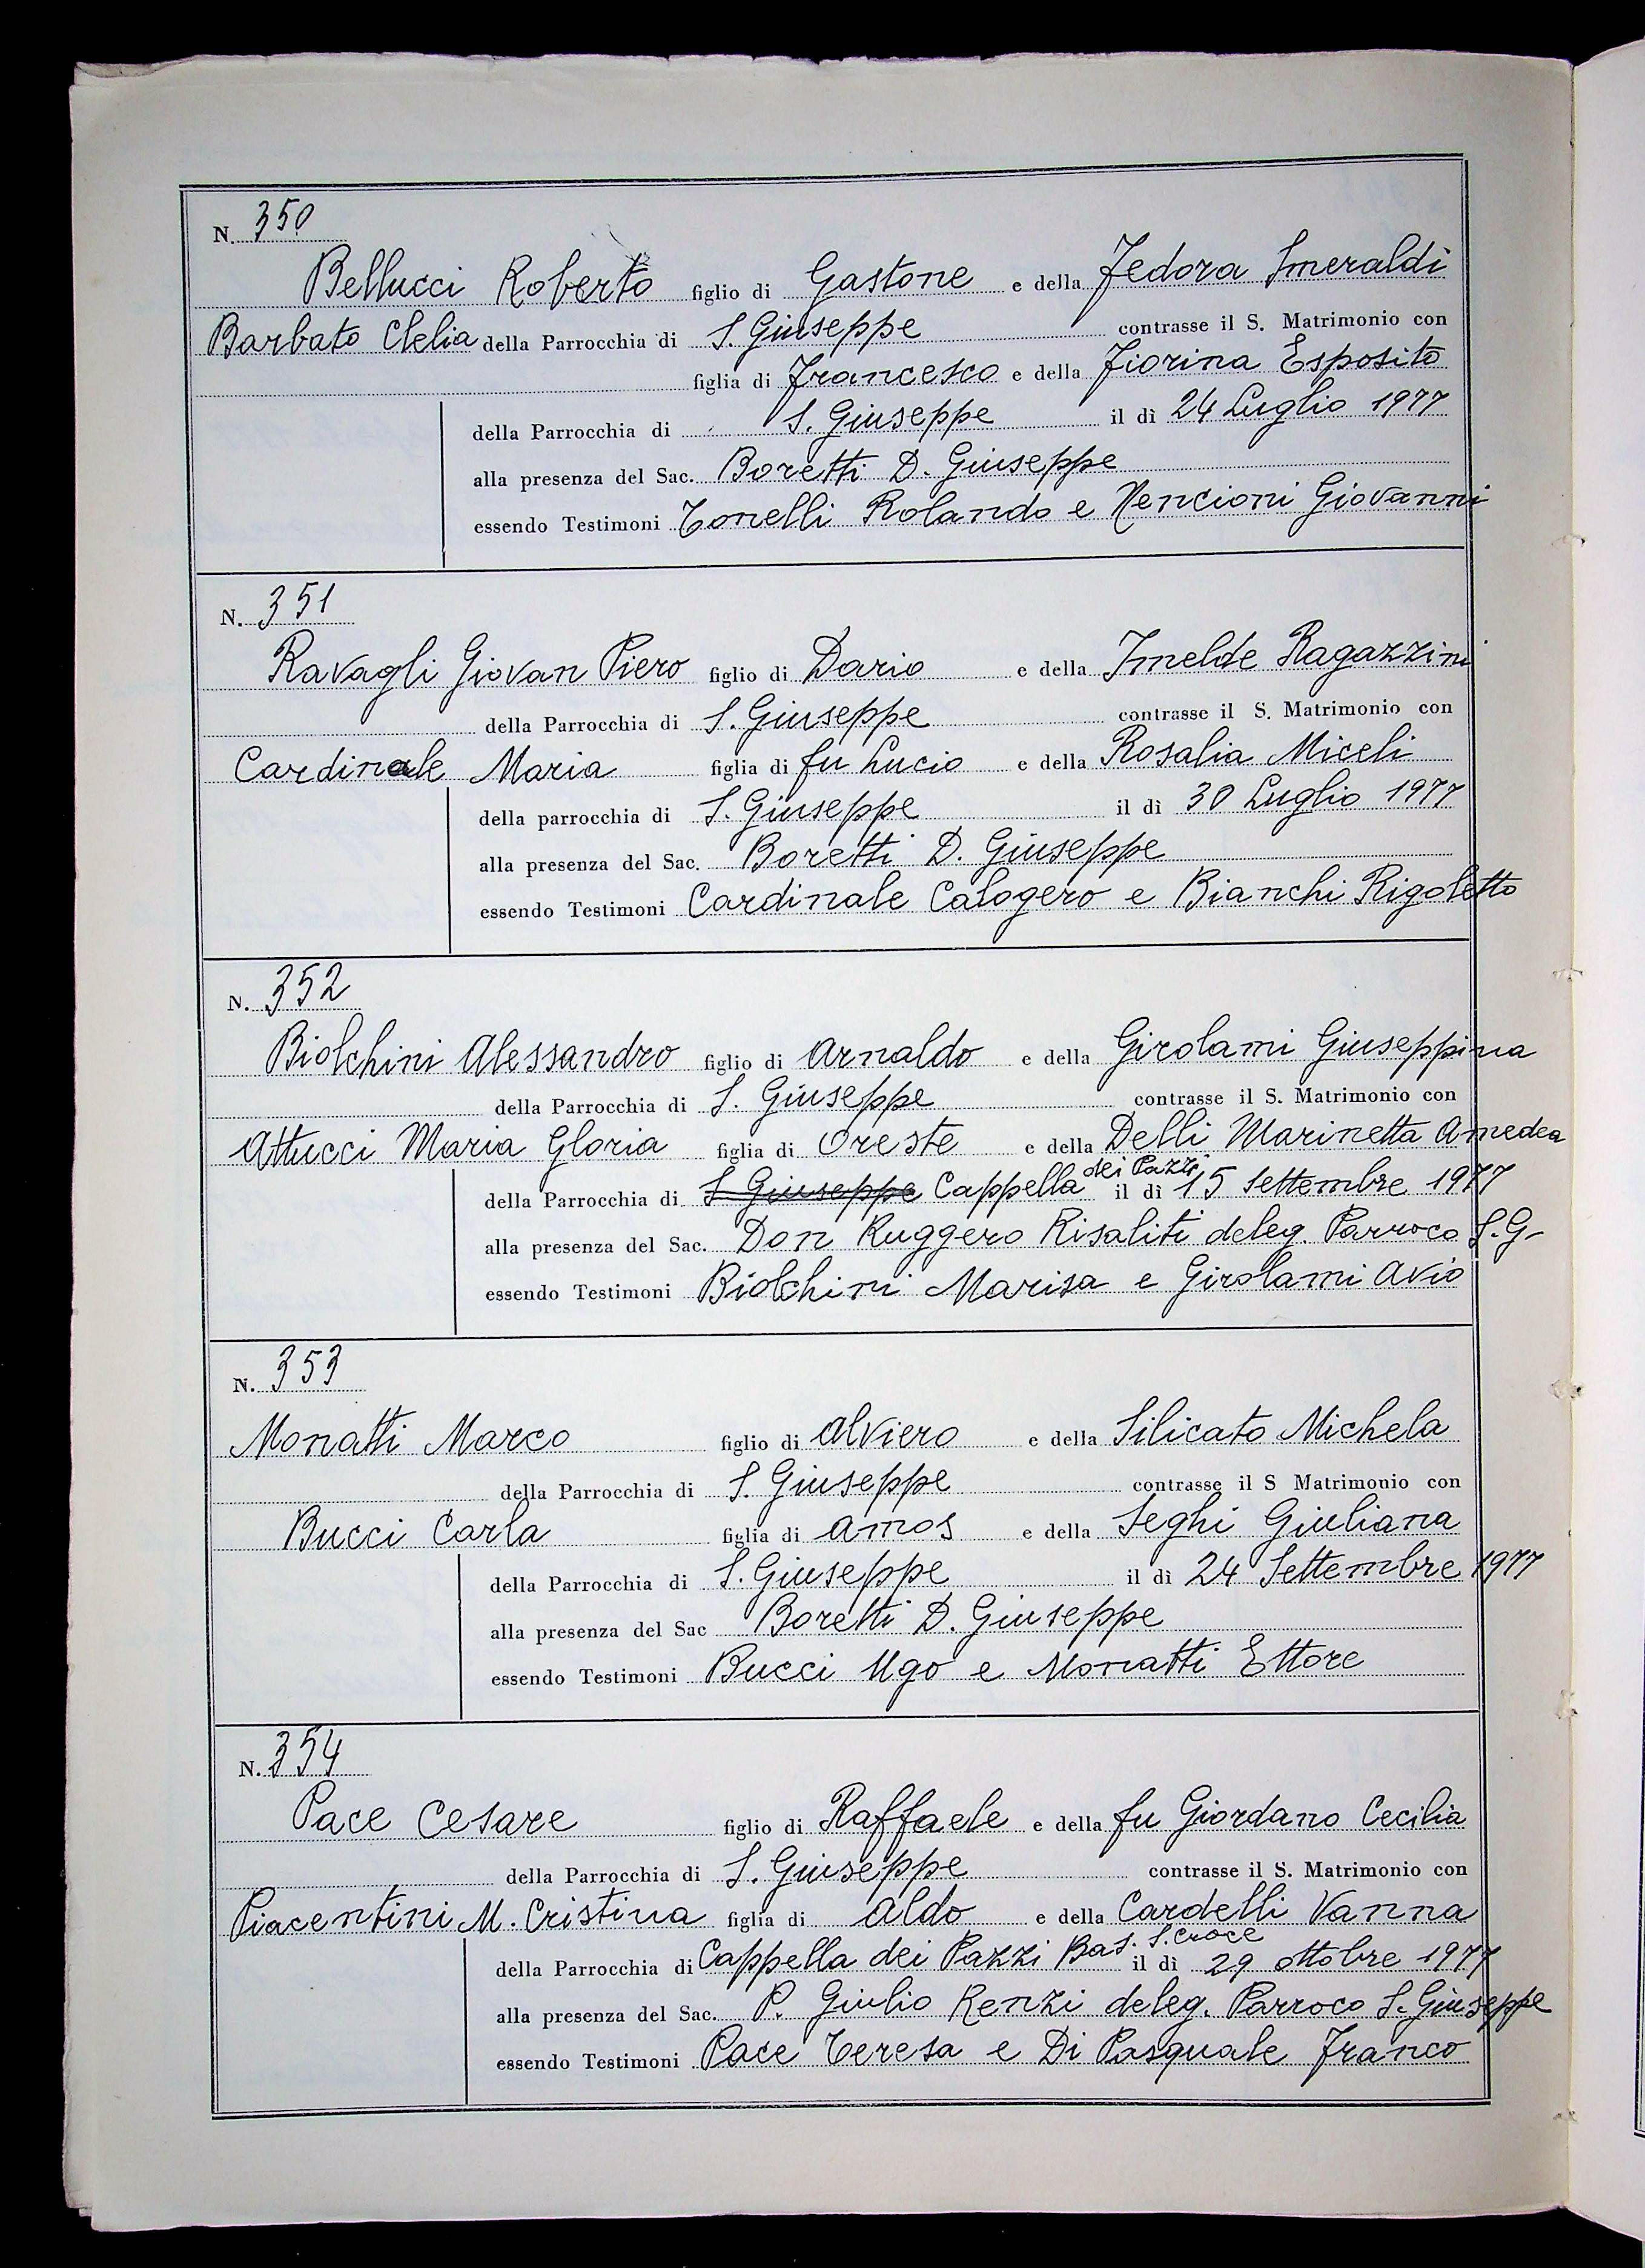 N. 350
Bellucci Roberto figlio di Gastone e della Fedora Smeraldi
Barbato Clelia della Parrocchia di S. Giuseppe contrasse il S. Matrimonio con
figlia di Francesco e della Fiorina Esposito
della Parrocchia di S. Giuseppe il dì 24 Luglio 1977
alla presenza del Sac. Boretti D. Giuseppe
essendo Testimoni Tonelli Rolando e Nencioni Giovanni
N. 351
Ravagli Giovan Piero figlio di Dario e della Imelde Ragazzini
della Parrocchia di S. Giuseppe contrasse il S. Matrimonio con
Cardinale Maria figlia di fu Lucio e della Rosalia Miceli
della parrocchia di S. Giuseppe il dì 30 Luglio 1977
alla presenza del Sac. Boretti D. Giuseppe
essendo Testimoni Cardinale Calogero e Bianchi Rigoletto
N. 352
Biolchini Alessandro figlio di Arnaldo e della Girolami Giuseppina
della Parrocchia di S. Giuseppe contrasse il S. Matrimonio con
Attucci Maria Gloria figlia di Oreste e della Delli Marinetta Amedea
della Parrocchia di S Giuseppe Cappella dei Pazzi il dì 15 Settembre 1977
alla presenza del Sac. Don Ruggero Risaliti deleg. Parroco S.G-
essendo Testimoni Biolchini Marisa e Girolami Avio
N. 353
Monatti Marco figlio di Alviero e della Silicato Michela
della Parrocchia di S. Giuseppe contrasse il S Matrimonio con
Bucci Carla figlia di Amos e della Seghi Giuliana
della Parrocchia di S. Giuseppe il dì 24 Settembre 1977
alla presenza del Sac Boretti D. Giuseppe
essendo Testimoni Bucci Ugo e Monatti Ettore
N. 354
Pace Cesare figlio di Raffaele e della fu Giordano Cecilia
della Parrocchia di S. Giuseppe contrasse il S. Matrimonio con
Piacentini M. Cristina figlia di Aldo e della Cardelli Vanna
della Parrocchia di Cappella dei Pazzi Bas. S. Croce il dì 29 ottobre 1977
alla presenza del Sac. P. Giulio Renzi deleg. Parroco S. Giuseppe
essendo Testimoni Pace Teresa e Di Pasquale Franco